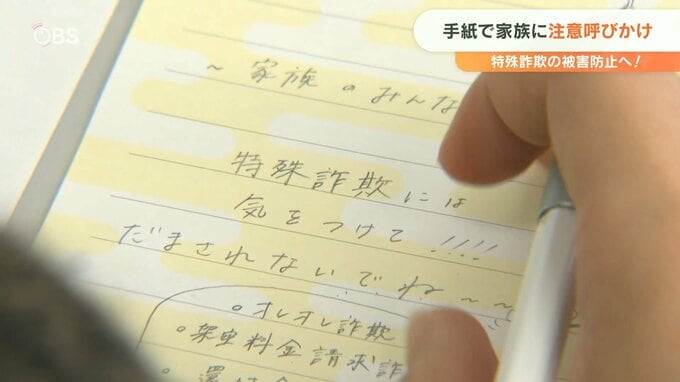 OBS
手紙で家族に注意呼びかけ
特殊詐欺の被害防止へ!
~家族のみんな
特殊詐欺には
気をつけて!!!!
だまされないでね~~
。オレオレ詐欺
。架空料金請求詐
。還